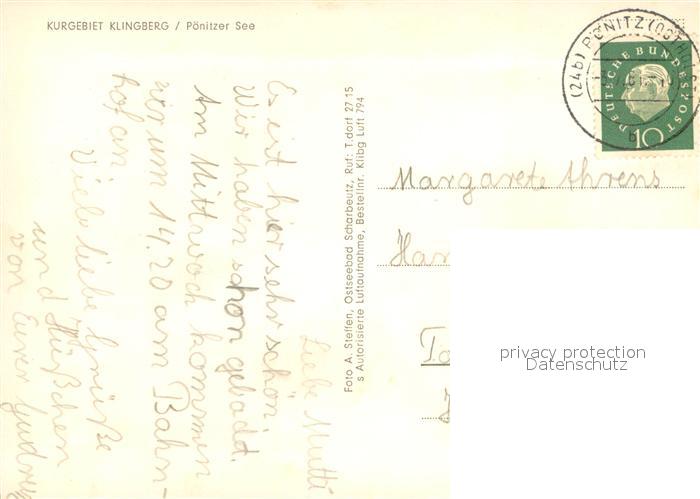 KURGEBIET KLINGBERG / Pönitzer See
Liebe Mutti
Es ist hier sehr schön.
Wir haben schon gebadet.
Am Mittwoch kommen
wir um 14.20 am Bahn-
hof an
Viele liebe Grüße
und Küßchen
von Eurer Gudrun
Foto A. Steffen, Ostseebad Scharbeutz, Ruf: T.dorf 27 15
s Autorisierte Luftaufnahme, Bestellnr. Klibg Luft 794
(24b) PÖNITZ (OSTHOL
b
DEUTSCHE BUNDESPOST
10
Margarete Ahrens
Ham
privacy protection
Datenschutz